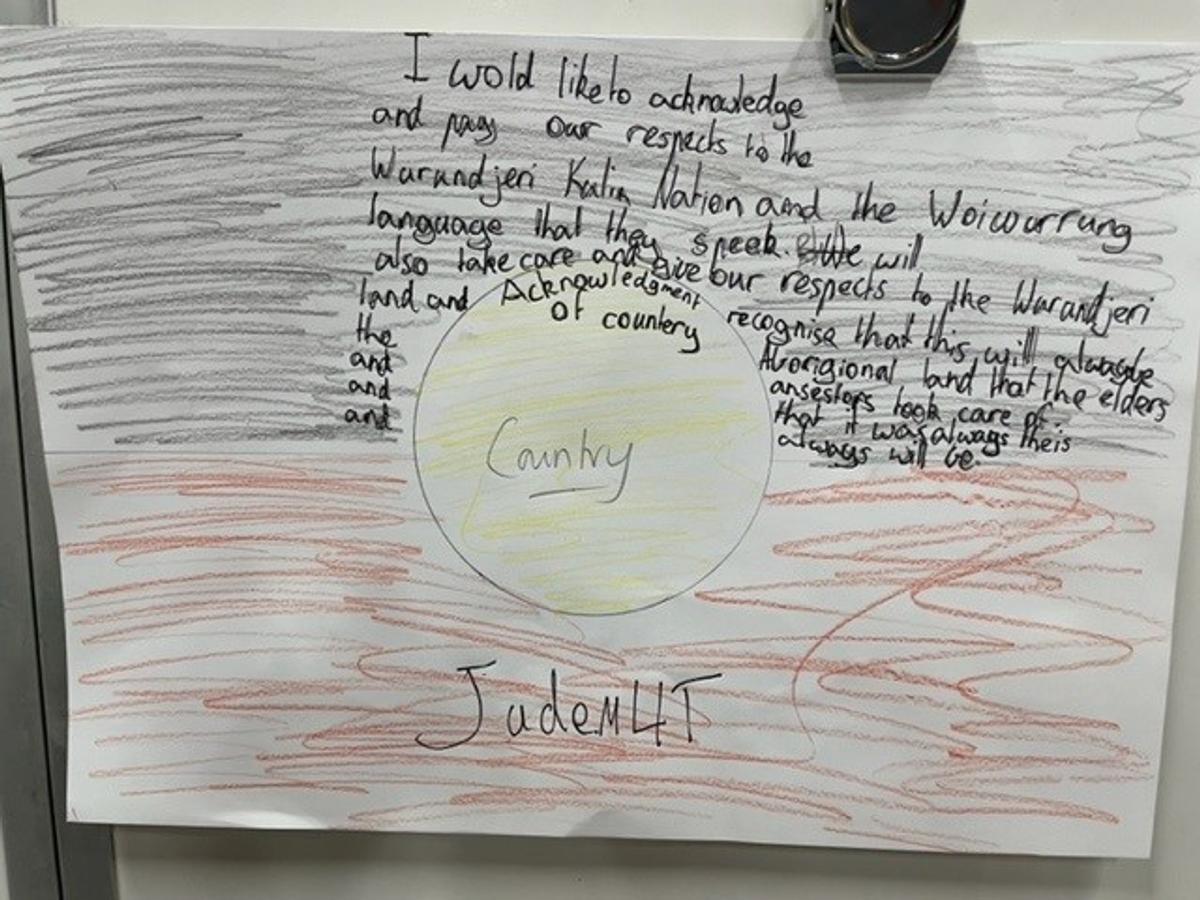 I wold like to acknowledge
and pay our respects to the
Warundjeri Kulin Nation and the Woiwurrung
language that they speek. We will
also take care and give our respects to the Warundjeri
land and recognise that this will always be
the Aborigional land that the elders
and ansestors took care of
and that it was always theis
and always will be.
Acknowledgment
of countery
Country
JudeM4T